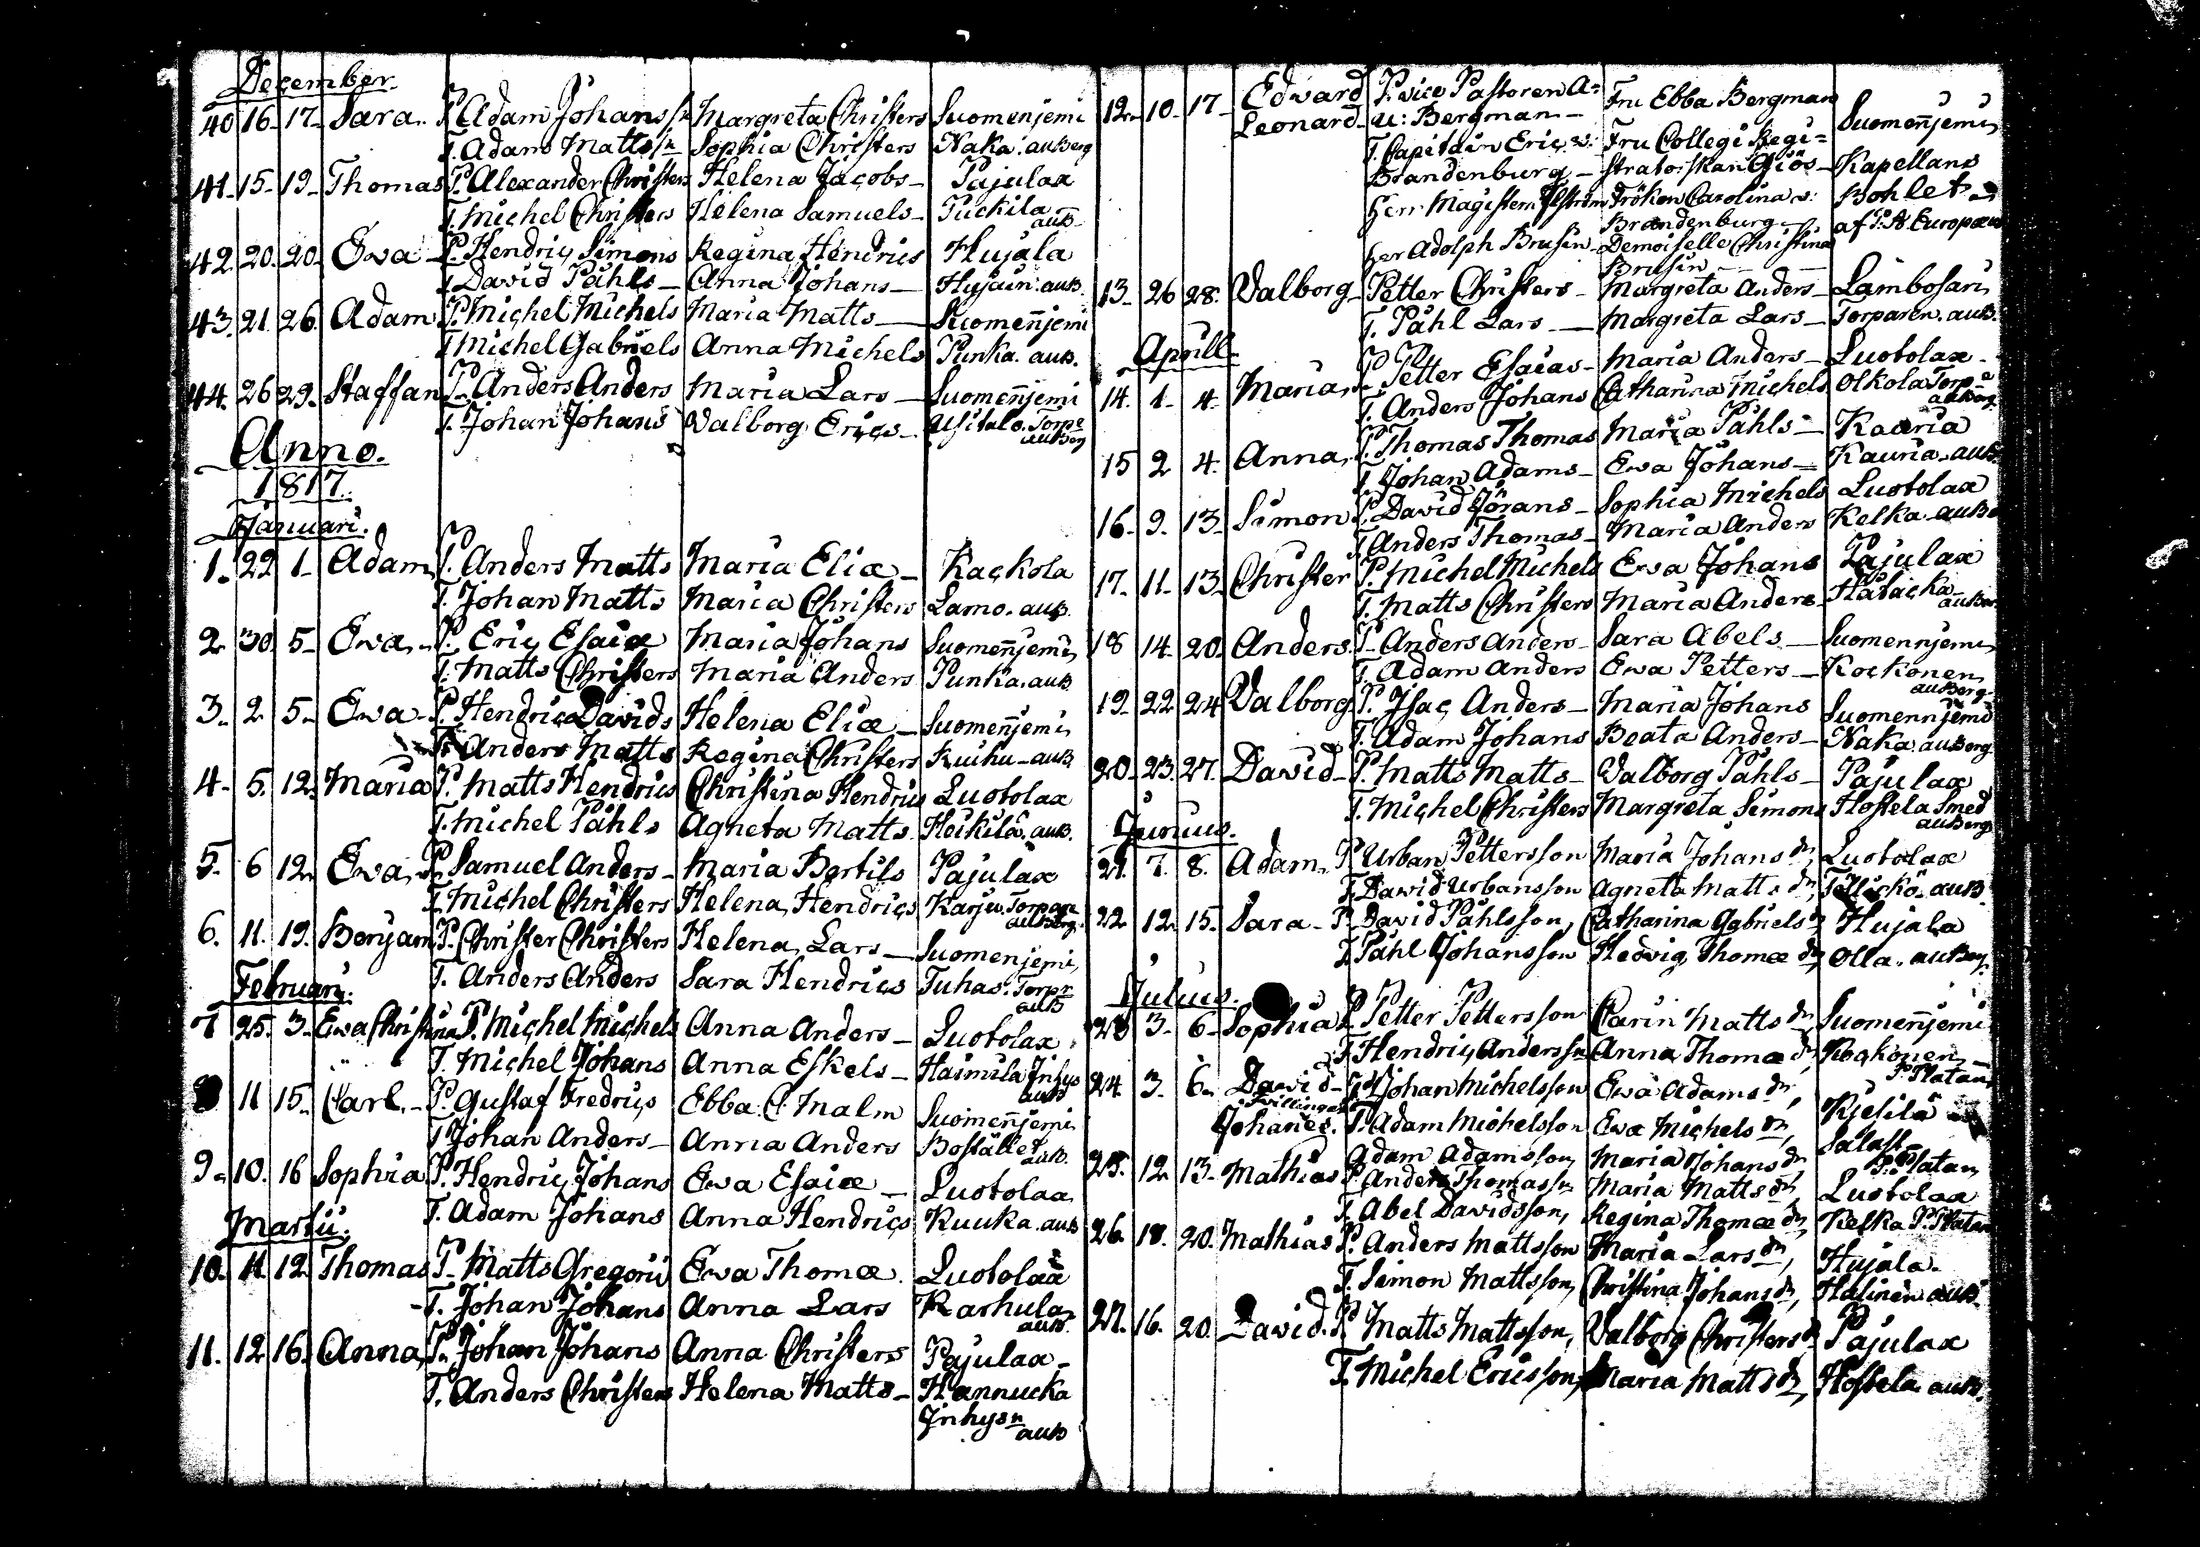 December.
40 16- 17- Sara.. P. Adam Johanss n Margreta Christers Suomenjemi
T. Adam Mattss n Sophia Christers Naka. außerg
41- 15- 19- Thomas P. Alexander Christers Helena Jacobs- Pajulax
T. Michel Christers Helena Samuels- Puckila auß-
42. 20. 20- Ewa- P. Hendric Simons Regina Hendrics Hujala
T. David Påhls- Anna Johans- Hujain. auß.
43. 21. 26. Adam P. Michel Michels Maria Matts- Suomenjemi
T. Michel Gabriels Anna Michels Punka. auß.
44. 26 29. Staffan P. Anders Anders Maria Lars- Suomenjemi
T. Johan Johans Valborg Erics- Usitalo. Torpe außerg
Anno.
1817.
Januari.
1. 22 1- Adam P. Anders Matts Maria Eliæ- Kackola
T. Johan Matts Maria Christers Lamo. auß.
2. 30. 5- Ewa.. P. Eric Esaiæ Maria Johans Suomenjemi
T. Matts Christers Maria Anders Punka. auß
3. 2 5- Ewa- P. Hendric Davids Helena Eliæ- Suomenjemi
T. Anders Matts Regina Christers Kuihu- auß
4- 5. 12. Maria P. Matts Hendrics Christina Hendrics Luotolax
T. Michel Påhls Agneta Matts. Heikilä. auß.
5. 6 12. Ewa, P. Samuel Anders- Maria Bertils Pajulax
T. Michel Christers Helena Hendrics Karju. Torpare außerg.
6. 11. 19. Benjam P. Christer Christers Helena Lars- Suomenjemi
T. Anders Anders Sara Hendrics Tuhas. Torpr auß
Februari.
7 25. 3- Ewa Christina P. Michel Michels Anna Anders- Luotolax
T. Michel Johans Anna Eskels- Haimila Inhys auß
8 11 15. Carl.- P. Gustaf Fredrics Ebba C: Malm Suomenjemi
T. Johan Anders- Anna Anders Bostället auß.
9. 10. 16 Sophia P. Hendric Johans Ewa Esaiæ- Luotolax
T. Adam Johans Anna Hendrics Kuuka. auß
Martii.
10. 11 12 Thomas P. Matts Gregorii Ewa Thomæ. Luotolax
T. Johan Johans Anna Lars Karhula auß.
11. 12 16. Anna, P. Johan Johans Anna Christers Pajulax-
T. Anders Christers Helena Matts- Hannucka
Inhysn auß
12. 10- 17- Edward P. vice Pastoren A= Fru Ebba Bergman Suomenjemi
Leonard- u: Bergman-
T. Capitain Eric v: Fru Collegi Regi=
Brandenburg- stratorskan Giös- Kapellans
Herr Magistern Fröken Carolina v: Bohlet
Brandenburg- af P. A. Europæus
Her Adolph Brusin- Demoiselle Christina
Brusin--
13- 26 28. Valborg- Petter Christers- Margreta Anders- Lambosari
T. Påhl Lars- Margreta Lars- Torparen. auß.
Aprill.
14. 1- 4. Maria, P. Petter Esaias- Maria Anders- Luotolax-
T. Anders Johans Catharina Michels Olkola Torpe außerg
15 2 4. Anna, P. Thomas Thomas Maria Påhls- Kauria
T. Johan Adams- Ewa Johans- Kauria. auß
16. 9. 13. Simon P. David Jörans- Sophia Michels Luotolax
T. Anders Thomas- Maria Anders Kelka auß
17. 11- 13- Christer P. Michel Michels Ewa Johans Pajulax
T. Matts Christers Maria Anders- Hätäcka außer
18 14. 20. Anders. P. Anders Anders- Sara Abels- Suomennjemi
T. Adam Anders Ewa Petters- Kockonen außerg-
19- 22 24 Valborg P. Isac Anders- Maria Johans Suomennjemi
T. Adam Johans Beata Anders- Naka außerg
20- 23. 27. David- P. Matts Matts- Valborg Påhls- Pajulax
T. Michel Christers Margreta Simons Hostela Smed außerg
Junius.
21. 7. 8. Adam. P. Urban Pettersson Maria Johans dr, Luotolax
T. David Urbansson Agneta Matts dr, auß
22 12. 15. Sara- P. David Påhlsson, Catharina Gabriels dr, Hujala
T. Påhl Johansson Hedvig Thomæ dr, Olla. außerg
Julius.
23 3- 6- Sophia P. Petter Pettersson Carin Matts dr, Suomenjemi
T. Hendric Anderssn Anna Thomæ dr, Kockonen P. Platan
24. 3. 6. David- P. Johan Michelsson Ewa Adams dr,
Tvillingar
Johanes. T. Adam Michelsson Ewa Michels dr, Kjesilä
Adam Adamsson, Maria Johans dr, P. Platan
25. 12 13- Mathias P. Anders Thomassn Maria Matts dr, Luotolax
T. Abel Davidsson, Regina Thomæ dr, Kelka P. Platan
26. 18. 20. Mathias P. Anders Mattsson Maria Lars dr, Hujala.
T. Simon Mattsson, Christina Johans dr, Halinen auß
27. 16. 20. David. P. Matts Mattsson, Valborg Christers dr Pajulax
T. Michel Ericsson, Maria Matts dr, Hostela auß.